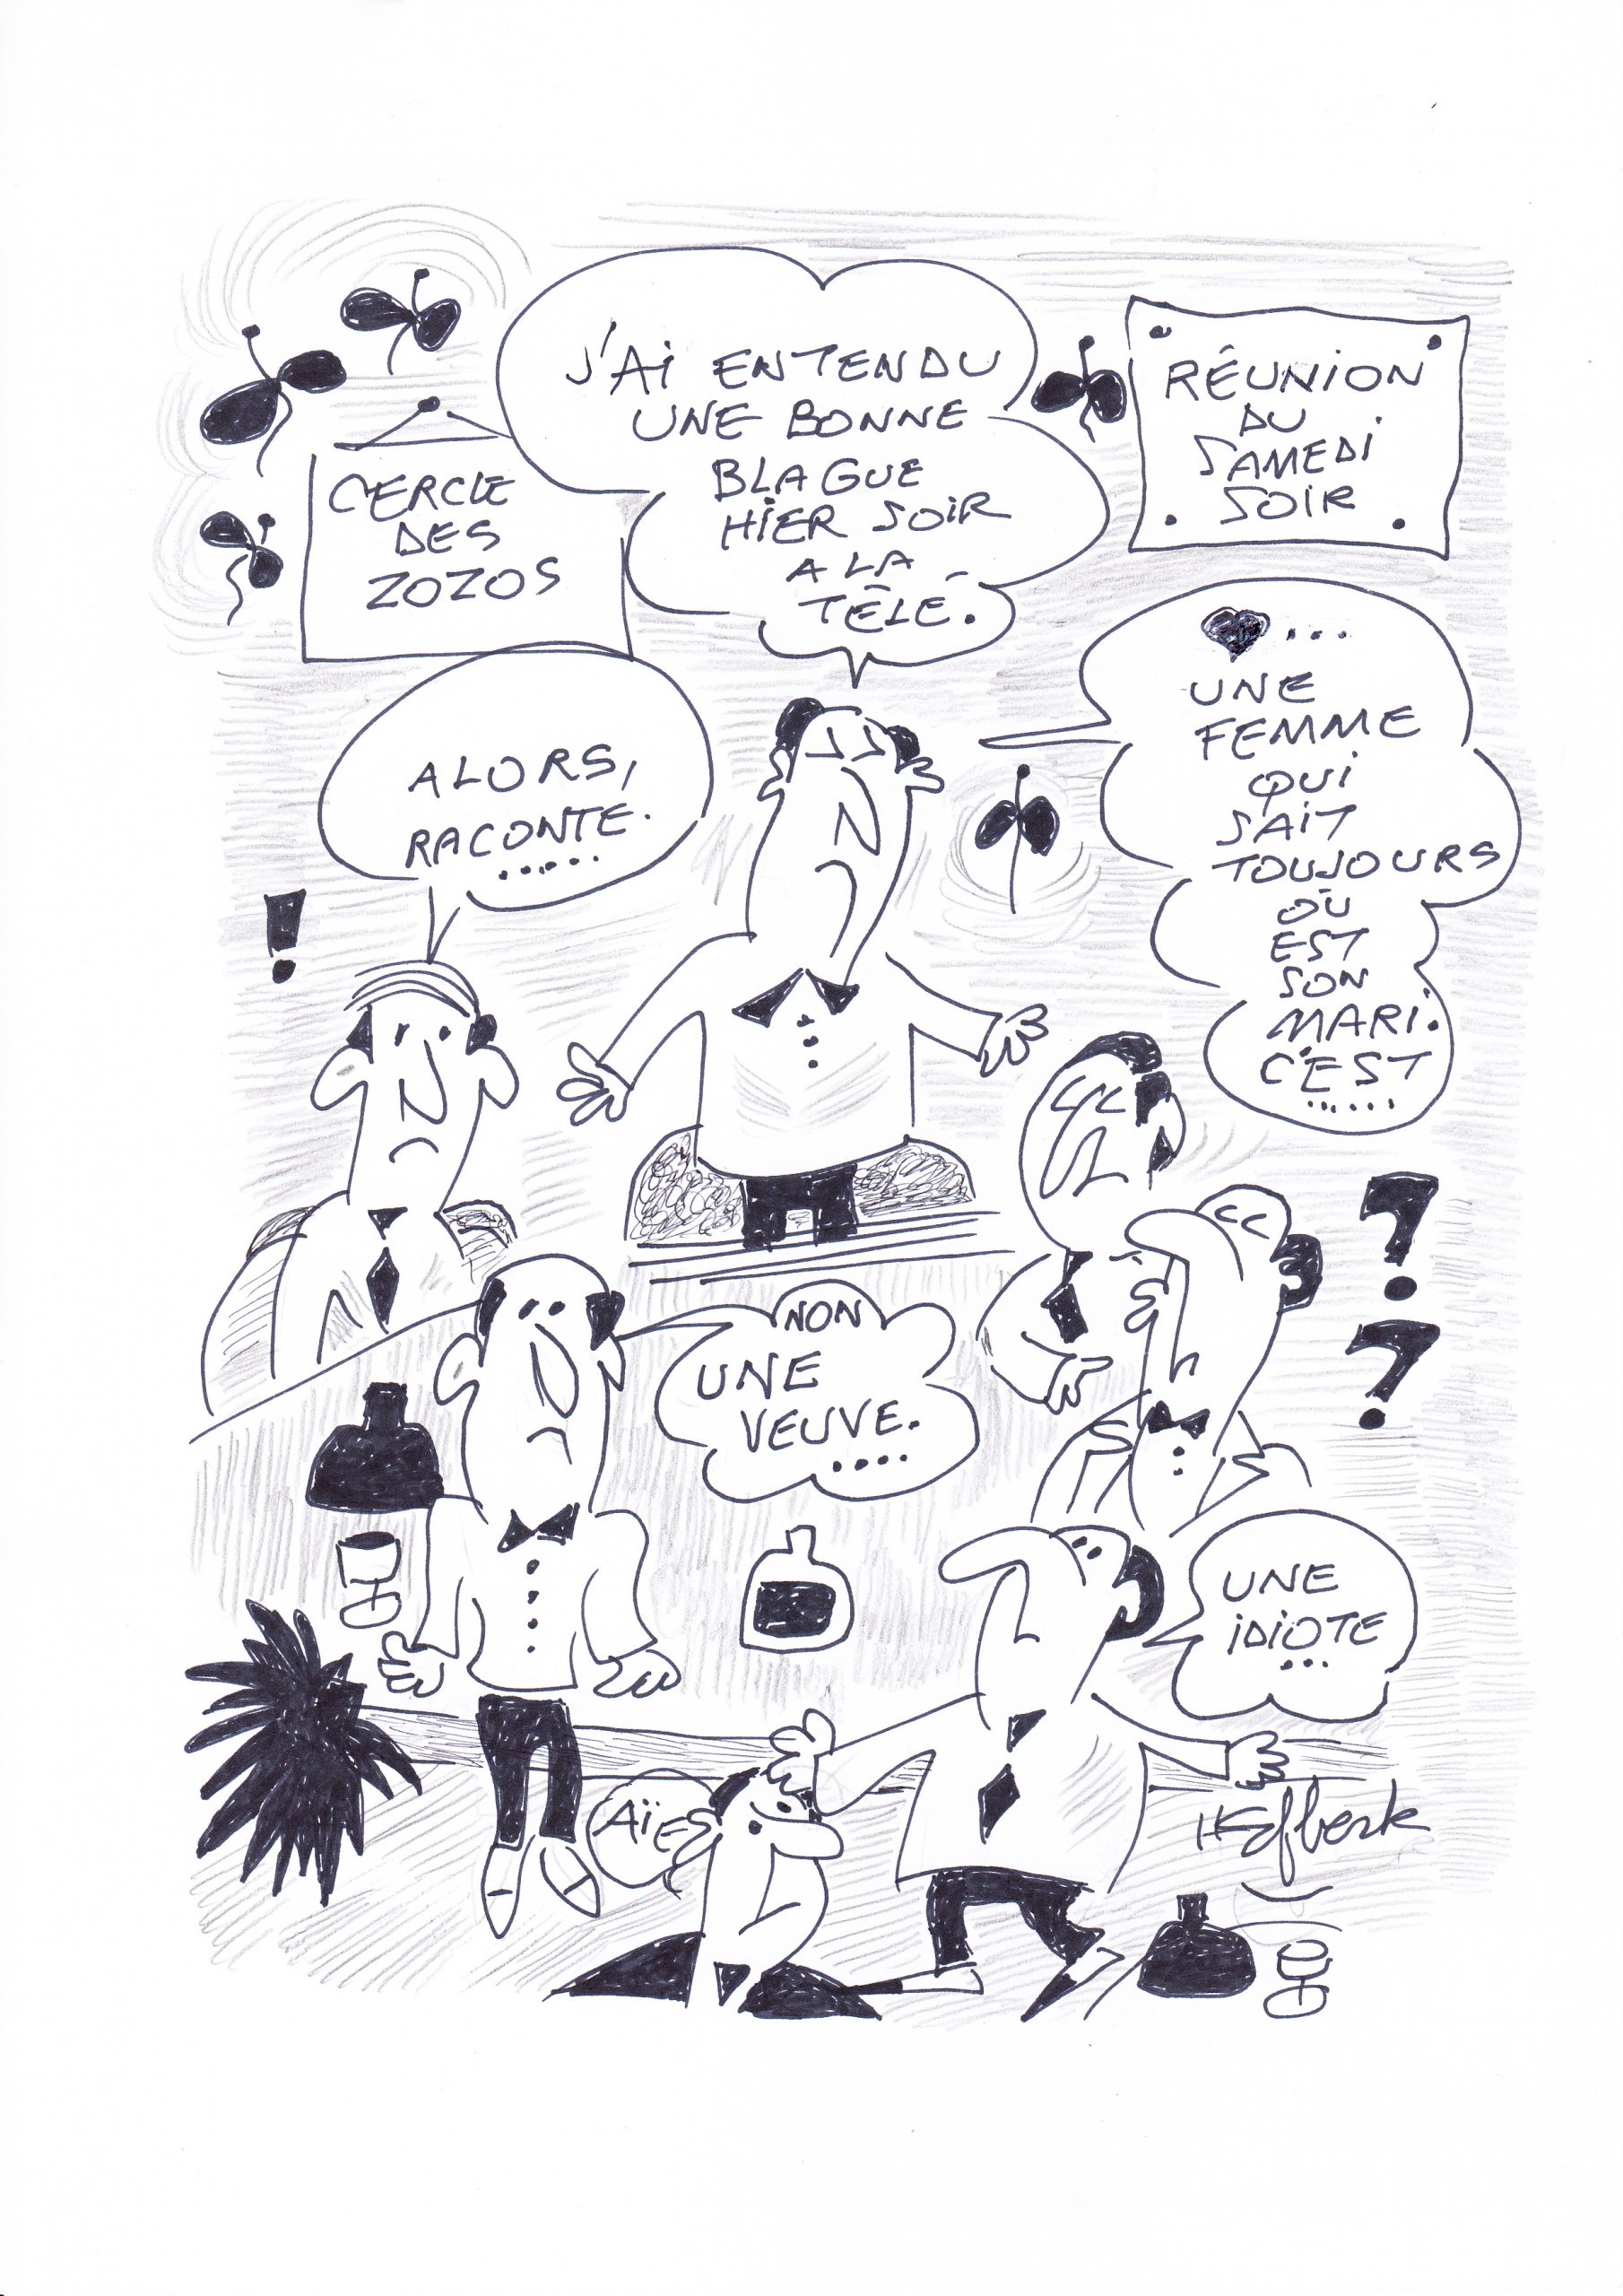 J'Ai ENTENDU
UNE BONNE
BLAGUE
HiER SOiR
A LA
TÉLÉ.
RÉUNiON
DU
SAMEDi
SOiR
CERCLE
DES
ZOZOS
ALORS,
RACONTE.
.....
...
UNE
FEMME
QUi
SAiT
TOUJOURS
OÙ
EST
SON
MARi.
C'EST
......
NON
UNE
VEUVE.
....
UNE
iDiOTE
...
AÏES